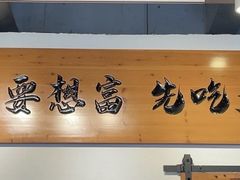 要想富 先吃